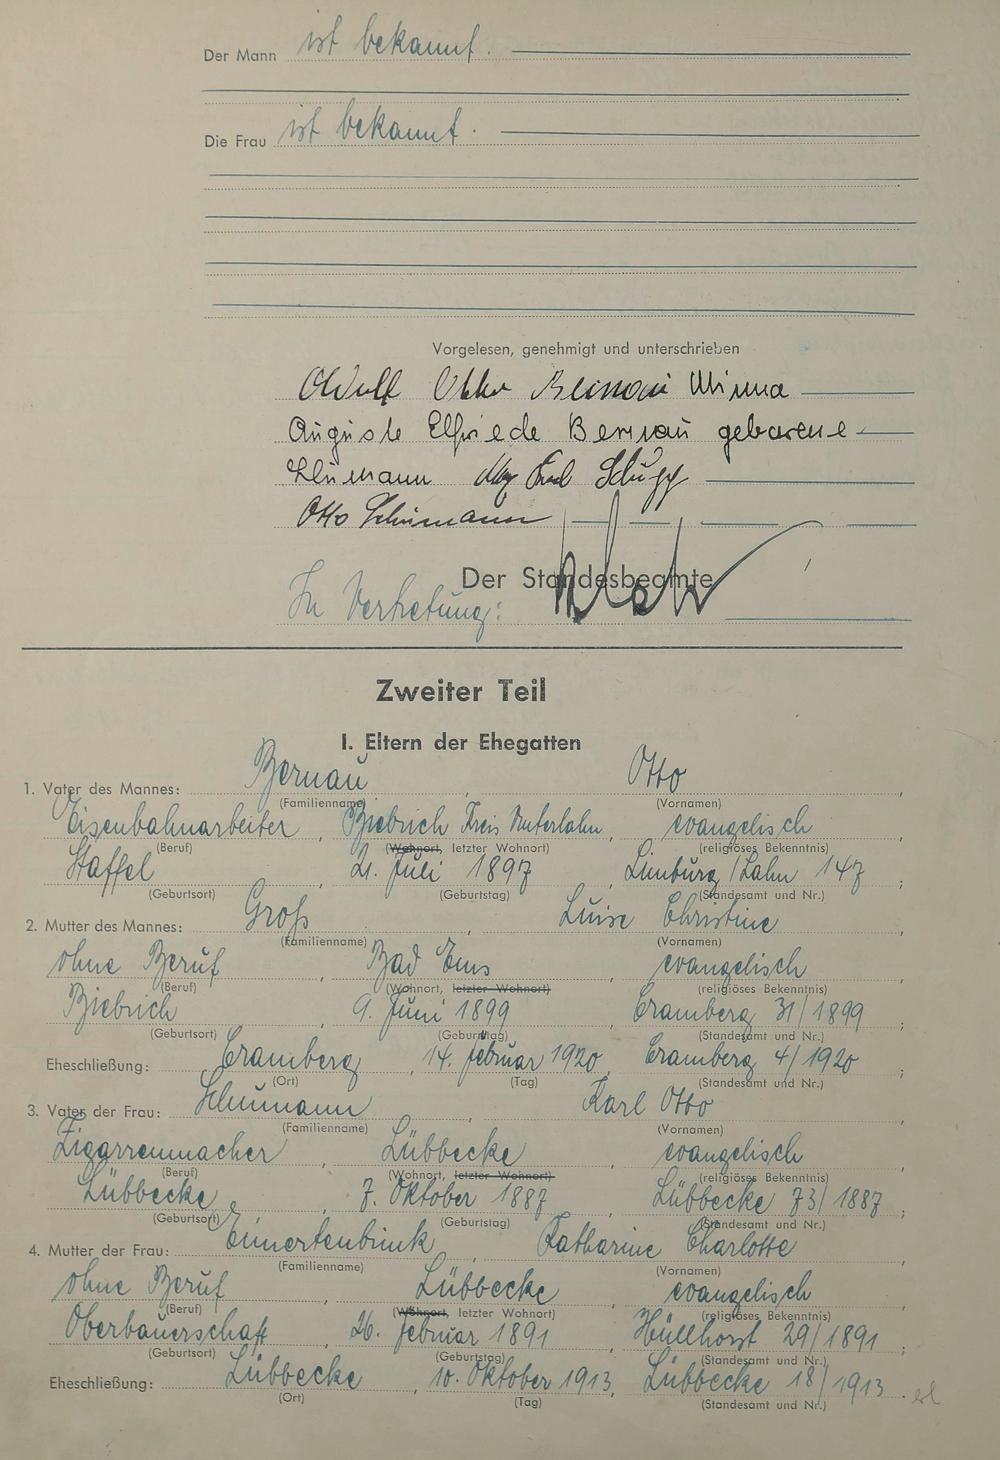 Der Mann ist bekannt.
Die Frau ist bekannt.
Vorgelesen, genehmigt und unterschrieben
Otto Bernau Minna
Auguste Elfriede Bernau geborene
Schumann Karl
Otto Schumann
Der Standesbeamte
In Vertretung:
Zweiter Teil
I. Eltern der Ehegatten
1. Vater des Mannes: Bernau, Otto,
(Familienname) (Vornamen)
Eisenbahnarbeiter, Biebrich Kreis Unterlahn, evangelisch,
(Beruf) (Wohnort, letzter Wohnort) (religiöses Bekenntnis)
Staffel, 21. Juli 1897, Limburg/Lahn 147;
(Geburtsort) (Geburtstag) (Standesamt und Nr.)
2. Mutter des Mannes: Groß, Luise Christine,
(Familienname) (Vornamen)
ohne Beruf, Bad Ems, evangelisch,
(Beruf) (Wohnort, letzter Wohnort) (religiöses Bekenntnis)
Biebrich, 9. Juni 1899, Cramberg 31/1899;
(Geburtsort) (Geburtstag) (Standesamt und Nr.)
Eheschließung: Cramberg, 14. Februar 1920, Cramberg 4/1920;
(Ort) (Tag) (Standesamt und Nr.)
3. Vater der Frau: Schumann, Karl Otto,
(Familienname) (Vornamen)
Zigarrenmacher, Lübbecke, evangelisch,
(Beruf) (Wohnort, letzter Wohnort) (religiöses Bekenntnis)
Lübbecke, 7. Oktober 1887, Lübbecke 73/1887;
(Geburtsort) (Geburtstag) (Standesamt und Nr.)
4. Mutter der Frau: Katharine Charlotte,
(Familienname) (Vornamen)
ohne Beruf, Lübbecke, evangelisch,
(Beruf) (Wohnort, letzter Wohnort) (religiöses Bekenntnis)
Oberbauerschaft, 26. Februar 1891, Hüllhorst 29/1891;
(Geburtsort) (Geburtstag) (Standesamt und Nr.)
Eheschließung: Lübbecke, 10. Oktober 1913, Lübbecke 18/1913.
(Ort) (Tag) (Standesamt und Nr.)